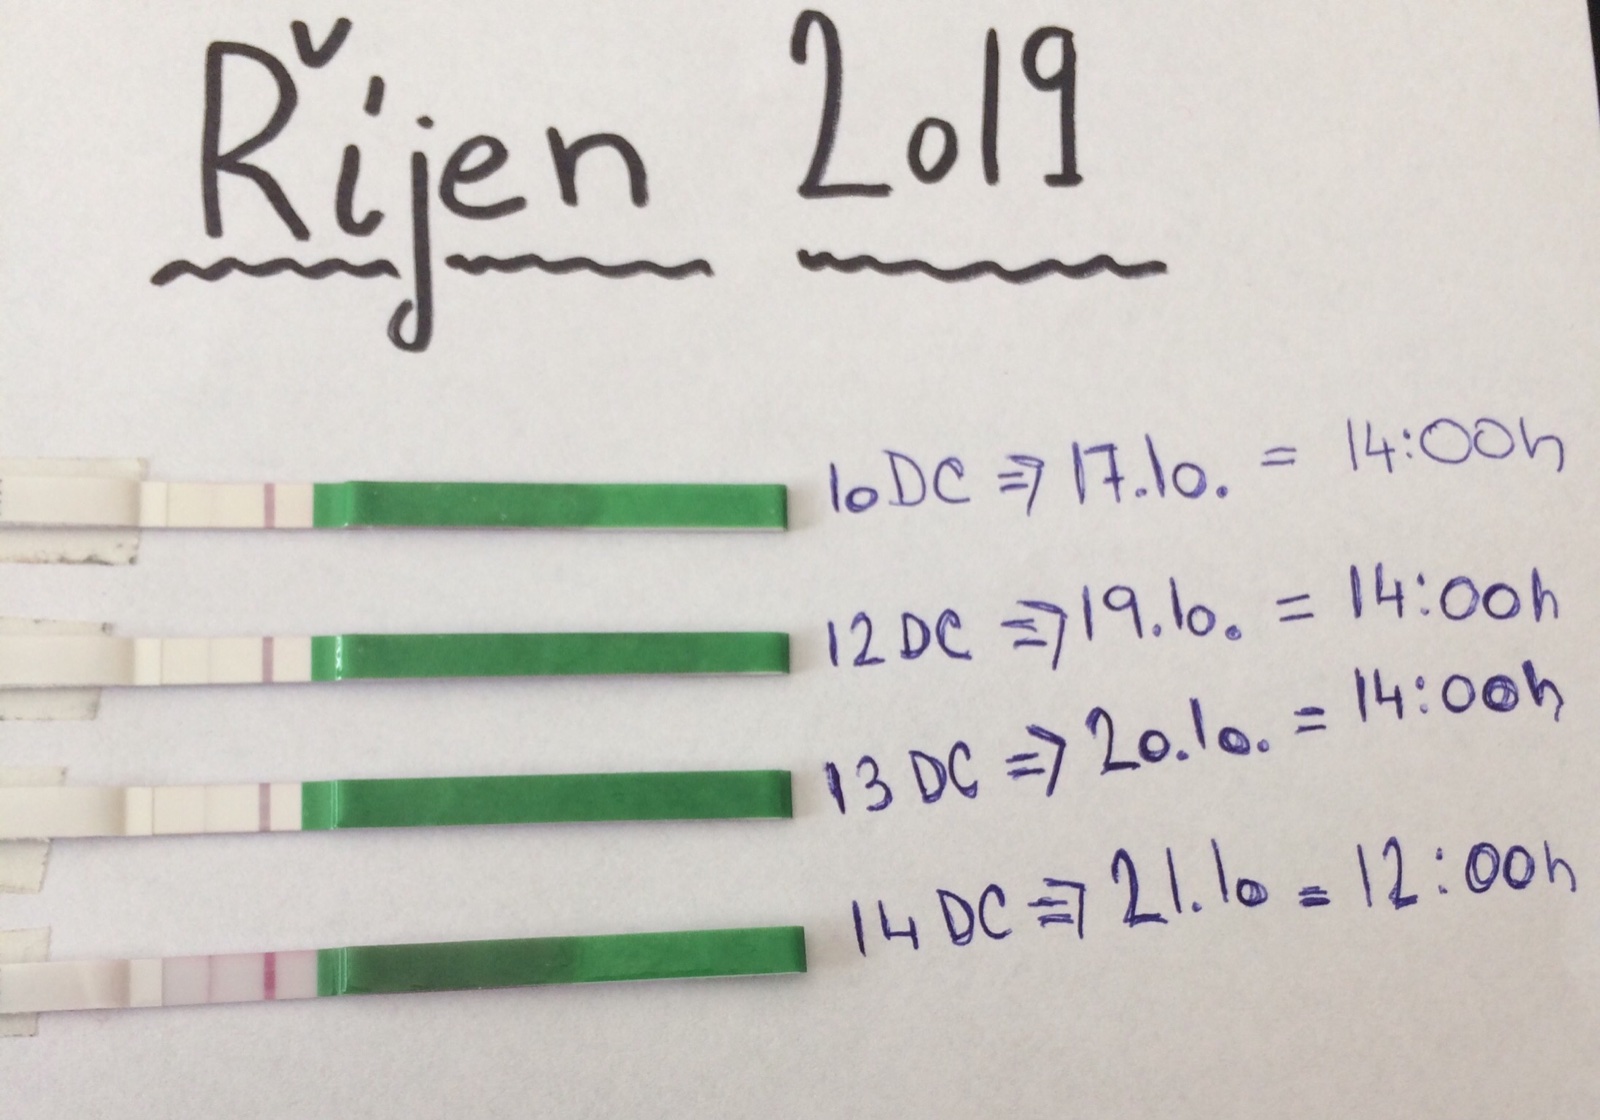 Říjen 2019
10 DC => 17.10. = 14:00h
12 DC => 19.10. = 14:00h
13 DC => 20.10. = 14:00h
14 DC => 21.10 = 12:00h